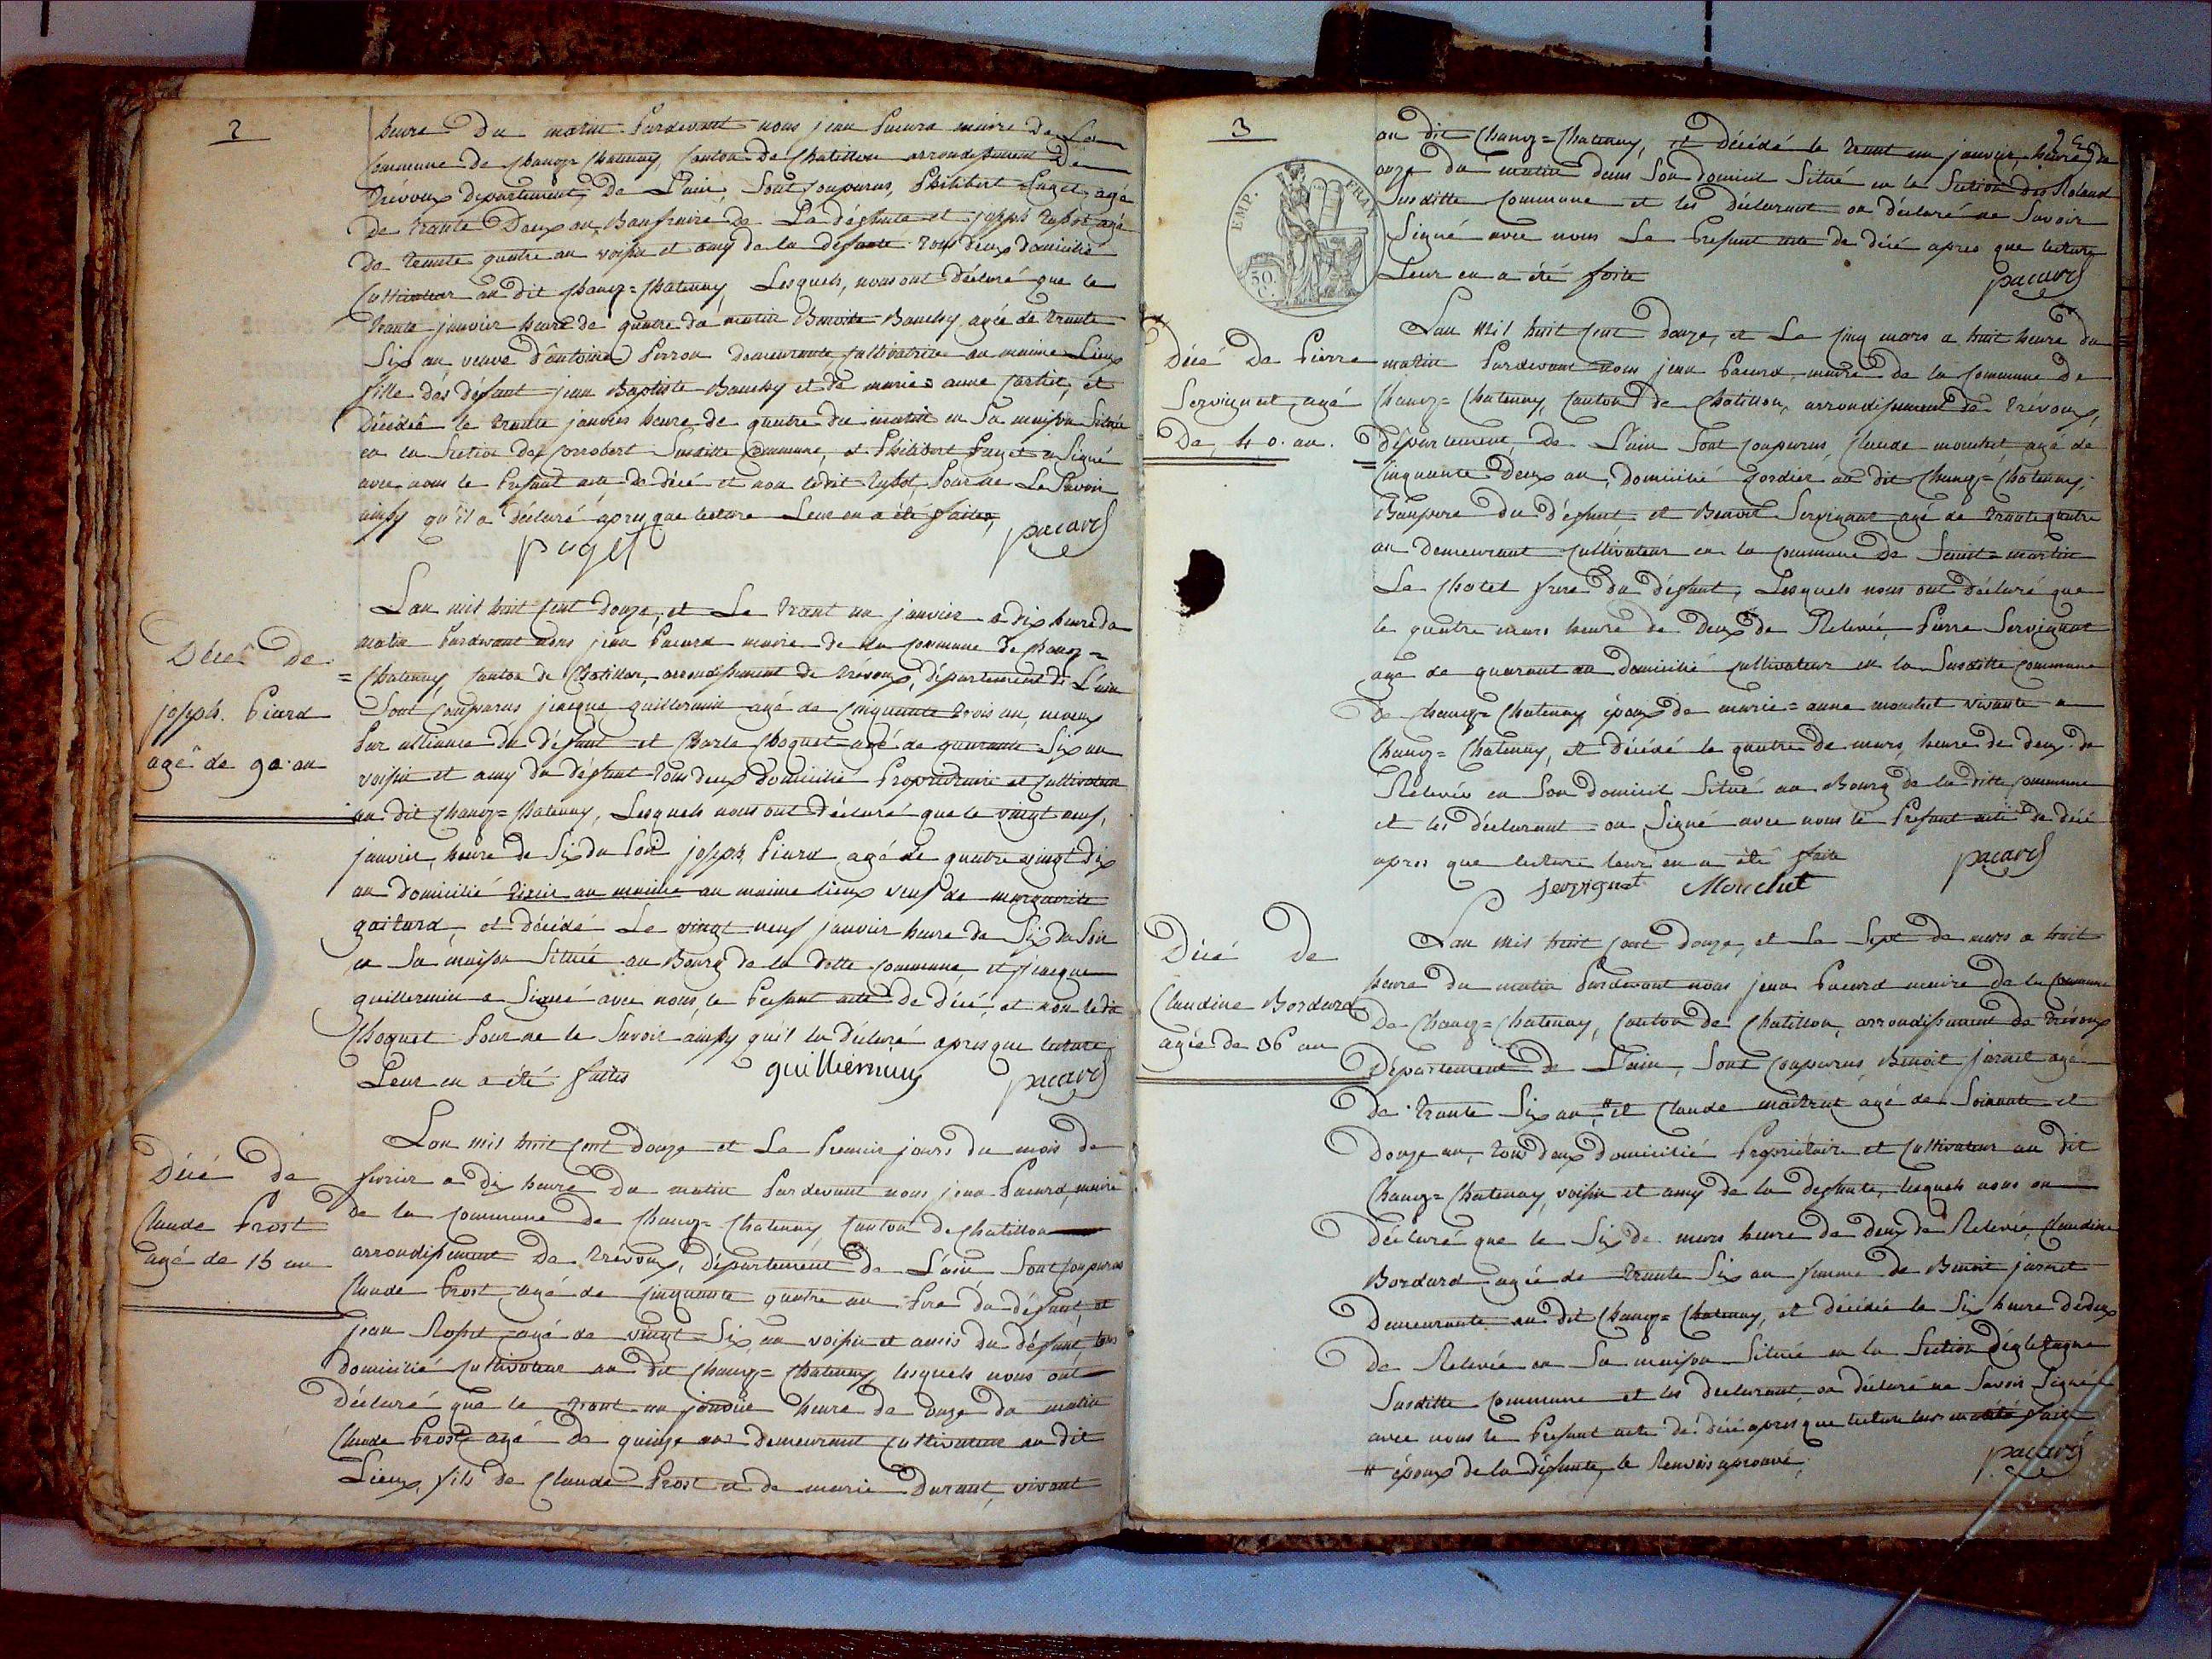 2
heure du matin Pardevant nous jean Pacard maire de La
Commune de Chanoz=Chatenay, Canton de Chatillon arrondissement de
Trévoux département de L'ain, Sont Comparus, Philibert Puget, agé
De trante Deux an, Baufraire de La défunte et joseph agé
De trante quatre an voisin et amy de la défunte tous deux domicilié
Cultivateur au dit Chanoz=Chatenay, Lesquels, nous ont Déclaré que le
trante janvier heure de quatre du matin Benoite Banchy agée de trante
Six an veuve d'antoine Perron demeurante Cultivatrice au maime Lieux
fille des défunt jean Baptiste Banchy et de marie anne Cartier, et
Décédée le trante janvier heure de quatre du matin en Sa maison Située
en la Section de Susditte Commune, et Philibert Puget a Signé
avec nous le Présant acte de décé et non ledit Pour ne Le Savoir
ainsy qu'il a déclaré apres que lecture Leur en a été faites,
puget pacard
Décé de
joseph. Picard
agé de 90 an
Lan mil huit Cent douze, et Le trant un janvier a dix heure du
matin Pardevant nous jean Pacard maire de la Commune de Chanoz=
=Chatenay, Canton de Chatillon, arrondissement de Trévoux, département de L'ain
Sont Comparus jacque guillermin agé de Cinquante trois an, neveux
Par alliance du défunt et Charle Choquet agé de quarante Six an
voisin et amy du défunt tous deux domicilié Propriétaire et Cultivateur
au dit Chanoz=Chatenay, Lesquels nous ont déclaré que le vingt neuf,
janvier, heure de Six du Soir joseph Picard agé de quatre vingt Dix
an domicilié au maime au maime lieux veuf de marguerite
gaitard, et décédé Le vingt neuf janvier heure de Six du Soir
en Sa maison Située au Bourg de la ditte Commune, et jacque
guillermin a Signé avec nous, le Présant acte de décé, et non ledit
Choquet Pour ne le Savoir ainsy qu'il la déclaré apres que lecture
Leur en a été faites guillermin pacard
Décé de
Claude Prost
agé de 15 an
Lan mil huit Cent douze et Le Premier jours du mois de
fevrier a dix heure du matin Pardevant nous, jean Pacard, maire
de la Commune de Chanoz=Chatenay Canton de Chatillon
arrondissement de Trévoux, département de L'ain Sont Comparus
Claude Prost agé de Cinquante quatre an Pere du défunt, et
jean agé de vingt-Six an voisin et amis du défunt, tous
domicilié Cultivateur au dit Chanoz=Chatenay lesquels nous ont
Déclaré que le trant un janvier heure de onze du matin
Claude Prost agé de quinze ans demeurant Cultivateur au dit
Lieux, fils de Claude Prost et de marie Durant, vivant
3
EMP. FRAN.
50 C.
au dit Chanoz=Chatenay, et Décédé le trant un janvier heure du
onze du matin dans Son domicil Situé en la Section des Roland
Susditte Commune et les déclarant on déclaré ne Savoir
Signé avec nous Le Présant acte de décé apres que lecture
Leur en a été faite pacard
Décé de Pierre
Servignat, agé
De 40. an.
Lan Mil huit Cent douze, et Le Cinq mars a huit heure du
matin Pardevant nous jean Pacard, maire de la Commune de
Chanoz=Chatenay, Canton de Chatillon, arrondissement de Trévoux,
département, De L'ain Sont Comparus, Claude mouchet, agé de
Cinquante Deux an, Domicilié Cordier au dit Chanoz=Chatenay,
Baupere du défunt et Benoit Servignat agé de trante quatre
an demeurant Cultivateur en la Commune de Saint=martin
Le Chatel frere du défunt, Lesquels nous ont déclaré que
le quatre mars heure de Deux de Relevée, Pierre Servignat
agé de quarant an Domicilié Cultivateur en la Susditte Commune
De Chanoz=Chatenay, époux de marie=anne mouchet vivante a
Chanoz=Chatenay, et Décédé le quatre de mars, heure de deux de
Relevée en Son domicil Situé au Bourg de la ditte Commune
et les déclarant on Signé avec nous le Présant acte de décé
apres que lecture leur en a été faite pacard
servignat Mouchet
Décé de
Claudine Bordard
agée de 36 an
Lan mil huit Cent douze, et Le Sept de mars a huit
heure du matin Pardevant nous jean Pacard maire de la Commune
De Chanoz=Chatenay, Canton de Chatillon, arrondissement de Trévoux
Département de L'ain, Sont Comparus, Benoit jarnet agé
de trante Six an, " et Claude maitrat agé de Soixante et
Douze an, tous deux domicilié Propriétaire et Cultivateur au dit
Chanoz=Chatenay, voisin et amy de la défunte, lesquels nous on
Déclaré que le Six de mars heure de deux de Relevée, Claudine
Bordard agée de trante Six an femme de Benoit jarnet
Demeurante au dit Chanoz=Chatenay, et décédée le Six heure de deux
de Relevée en Sa maison Située en la Section
Susditte Commune et les déclarant, on déclaré ne Savoir Signé
avec nous le Présant acte de décé apres que lecture leur en a été faite
" époux de la défunte, le Renvois aprouvé, pacard